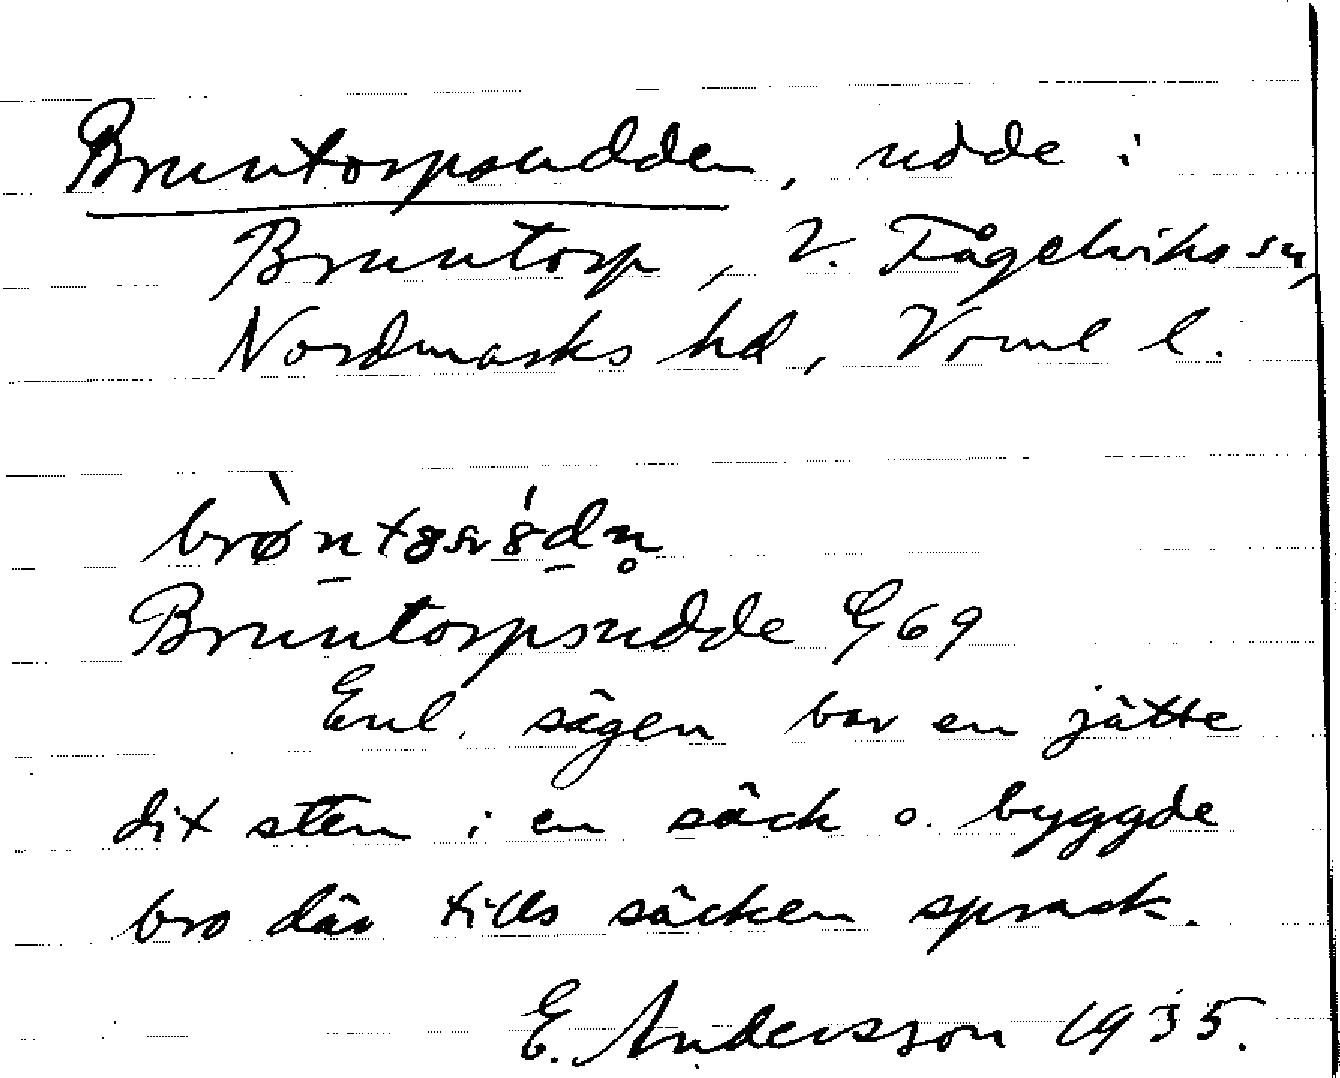 Bruntorpsudden, udde i
Bruntorp, V. Fågelviks sn,
Nordmarks hd, Värml l.
Bruntorpsudde E 69
Enl. sägen bar en jätte
dit sten i en säck o. byggde
bro där tills säcken sprack.
E. Andersson 1935.